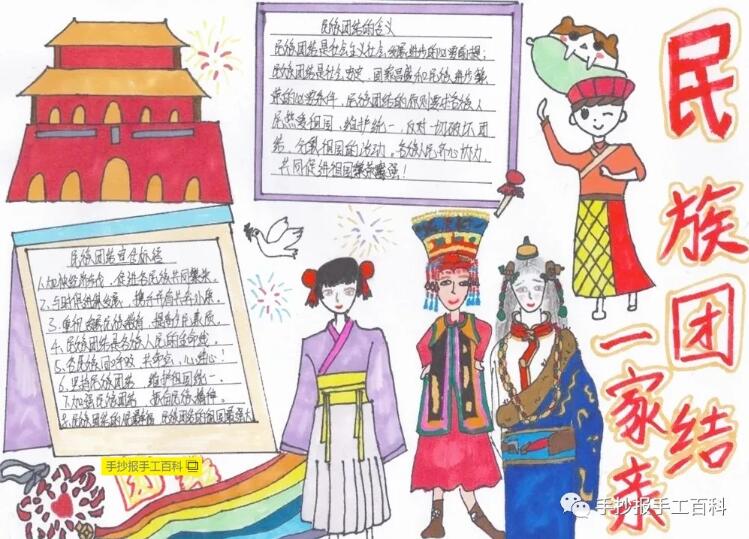 民族团结的含义
民族团结是社会主义社会发展进步的必要前提；
民族团结是社会安定、国家昌盛和民族进步繁
荣的必要条件，民族团结的原则要求各族人
民热爱祖国，维护统一，反对一切破坏团
结、分裂祖国的活动。各族人民齐心协力，
共同促进祖国繁荣富强！
民族团结宣传标语
1.加快经济发展，促进各民族共同繁荣。
4.民族团结是各族人民的生命线。
6.坚持民族团结 维护祖国统一。
7.加强民族团结
民族团结
一家亲
团结
手抄报手工百科
手抄报手工百科